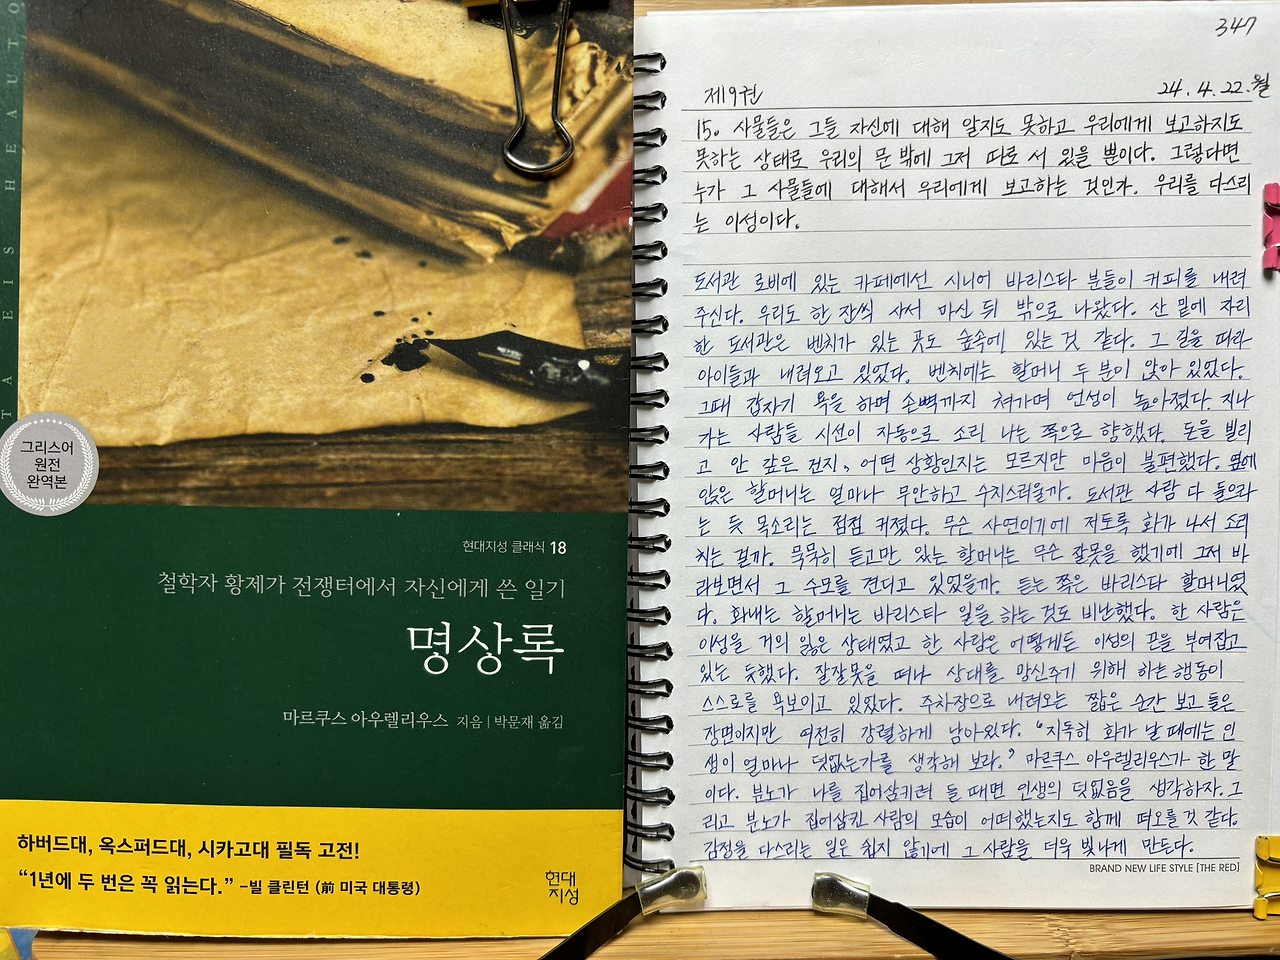 TA EIS HEAUTO
그리스어
원전
완역본
현대지성 클래식 18
철학자 황제가 전쟁터에서 자신에게 쓴 일기
명상록
마르쿠스 아우렐리우스 지음 | 박문재 옮김
하버드대, 옥스퍼드대, 시카고대 필독 고전!
“1년에 두 번은 꼭 읽는다.” –빌 클린턴 (前 미국 대통령)
현대
지성
347
제9권 24.4.22.월
15. 사물들은 그들 자신에 대해 알지도 못하고 우리에게 보고하지도
못하는 상태로 우리의 문 밖에 그저 따로 서 있을 뿐이다. 그렇다면
누가 그 사물들에 대해서 우리에게 보고하는 것인가. 우리를 다스리
는 이성이다.
도서관 로비에 있는 카페에선 시니어 바리스타 분들이 커피를 내려
주신다. 우리도 한 잔씩 사서 마신 뒤 밖으로 나왔다. 산 밑에 자리
한 도서관은 벤치가 있는 곳도 숲속에 있는 것 같다. 그 길을 따라
아이들과 내려오고 있었다. 벤치에는 할머니 두 분이 앉아 있었다.
그때 갑자기 욕을 하며 손뼉까지 쳐가며 언성이 높아졌다. 지나
가는 사람들 시선이 자동으로 소리 나는 쪽으로 향했다. 돈을 빌리
고 안 갚은 건지, 어떤 상황인지는 모르지만 마음이 불편했다. 옆에
앉은 할머니는 얼마나 무안하고 수치스러울까. 도서관 사람 다 들으라
는 듯 목소리는 점점 커졌다. 무슨 사연이기에 저토록 화가 나서 소리
치는 걸까. 묵묵히 듣고만 있는 할머니는 무슨 잘못을 했기에 그저 바
라보면서 그 수모를 견디고 있었을까. 듣는 쪽은 바리스타 할머니였
다. 화내는 할머니는 바리스타 일을 하는 것도 비난했다. 한 사람은
이성을 거의 잃은 상태였고 한 사람은 어떻게든 이성의 끈을 부여잡고
있는 듯했다. 잘잘못을 떠나 상대를 망신주기 위해 하는 행동이
스스로를 욕보이고 있었다. 주차장으로 내려오는 짧은 순간 보고 들은
장면이지만 여전히 강렬하게 남아있다. “지독히 화가 날 때에는 인
생이 얼마나 덧없는가를 생각해 보라.” 마르쿠스 아우렐리우스가 한 말
이다. 분노가 나를 집어삼키려 들 때면 인생의 덧없음을 생각하자. 그
리고 분노가 집어삼킨 사람의 모습이 어떠했는지도 함께 떠오를 것 같다.
감정을 다스리는 일은 쉽지 않기에 그 사람을 더욱 빛나게 만든다.
BRAND NEW LIFE STYLE [THE RED]